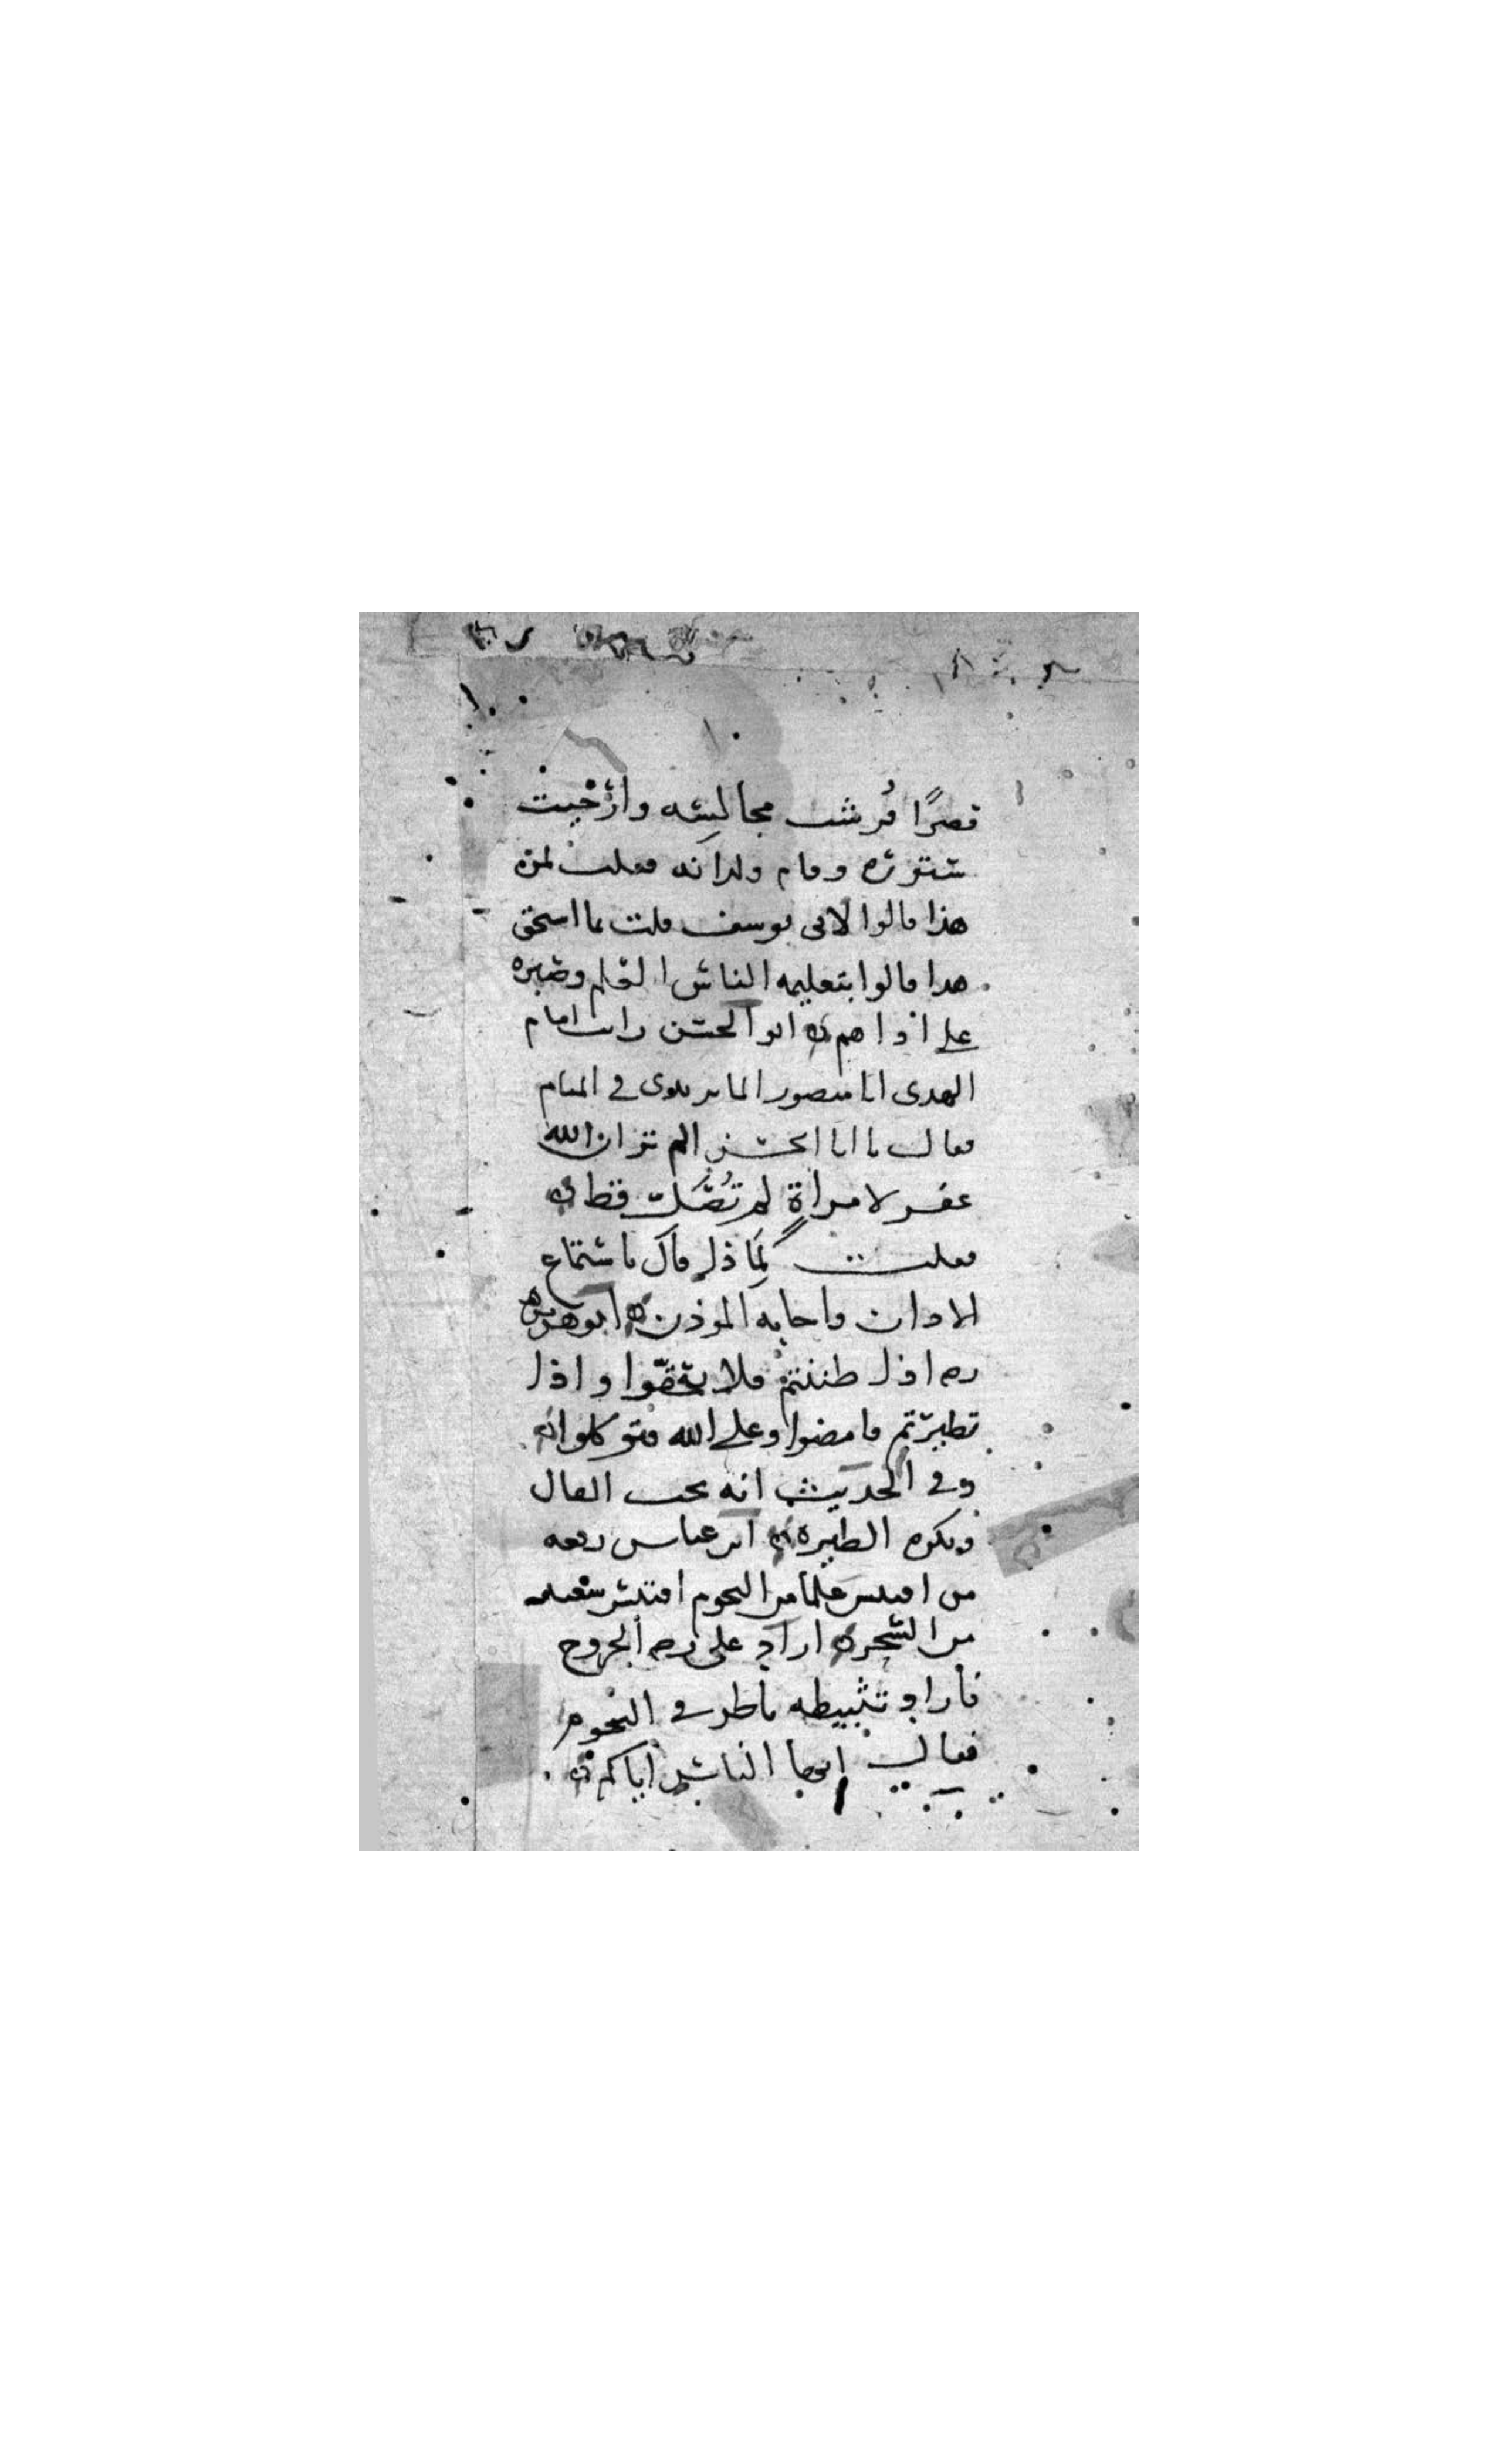 قصرًا فُرشت مجالسه وأرخيت
ستوره وقام ولدانه فقلت لمن
هذا قالوا لابي يوسف قلت بما استحق
هذا قالوا بتعليمه الناس العلم وصبره
على اذاهم ابو الحسن رات امام
الهدى ابا منصور الماتريدي في المنام
فقال يا ابا الحسن الم تر ان الله
غفر لامراةٍ لم تُصَلّ قط
فقلت لِمَا ذا قال باستماع
الاذان واجابه الموذن ابو هريره
رضه اذا ظننتم فلا تحققوا واذا
تطيرتم فامضوا وعلى الله فتوكلوا
وفي الحديث انه يحب الفال
ويكره الطيرة ابن عباس رفعه
من اقتبس علما من النجوم اقتبس شعبه
من السحر اراد على رضه الخروج
فأراد تثبيطه ناظر في النجوم
فقال ايها الناس اياكم